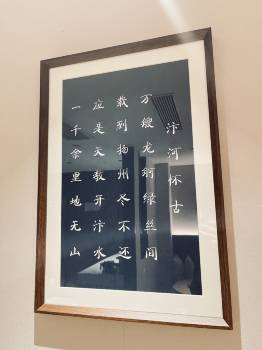 汴河怀古
万艘龙舸绿丝间
载到扬州尽不还
应是天教开汴水
一千余里地无山